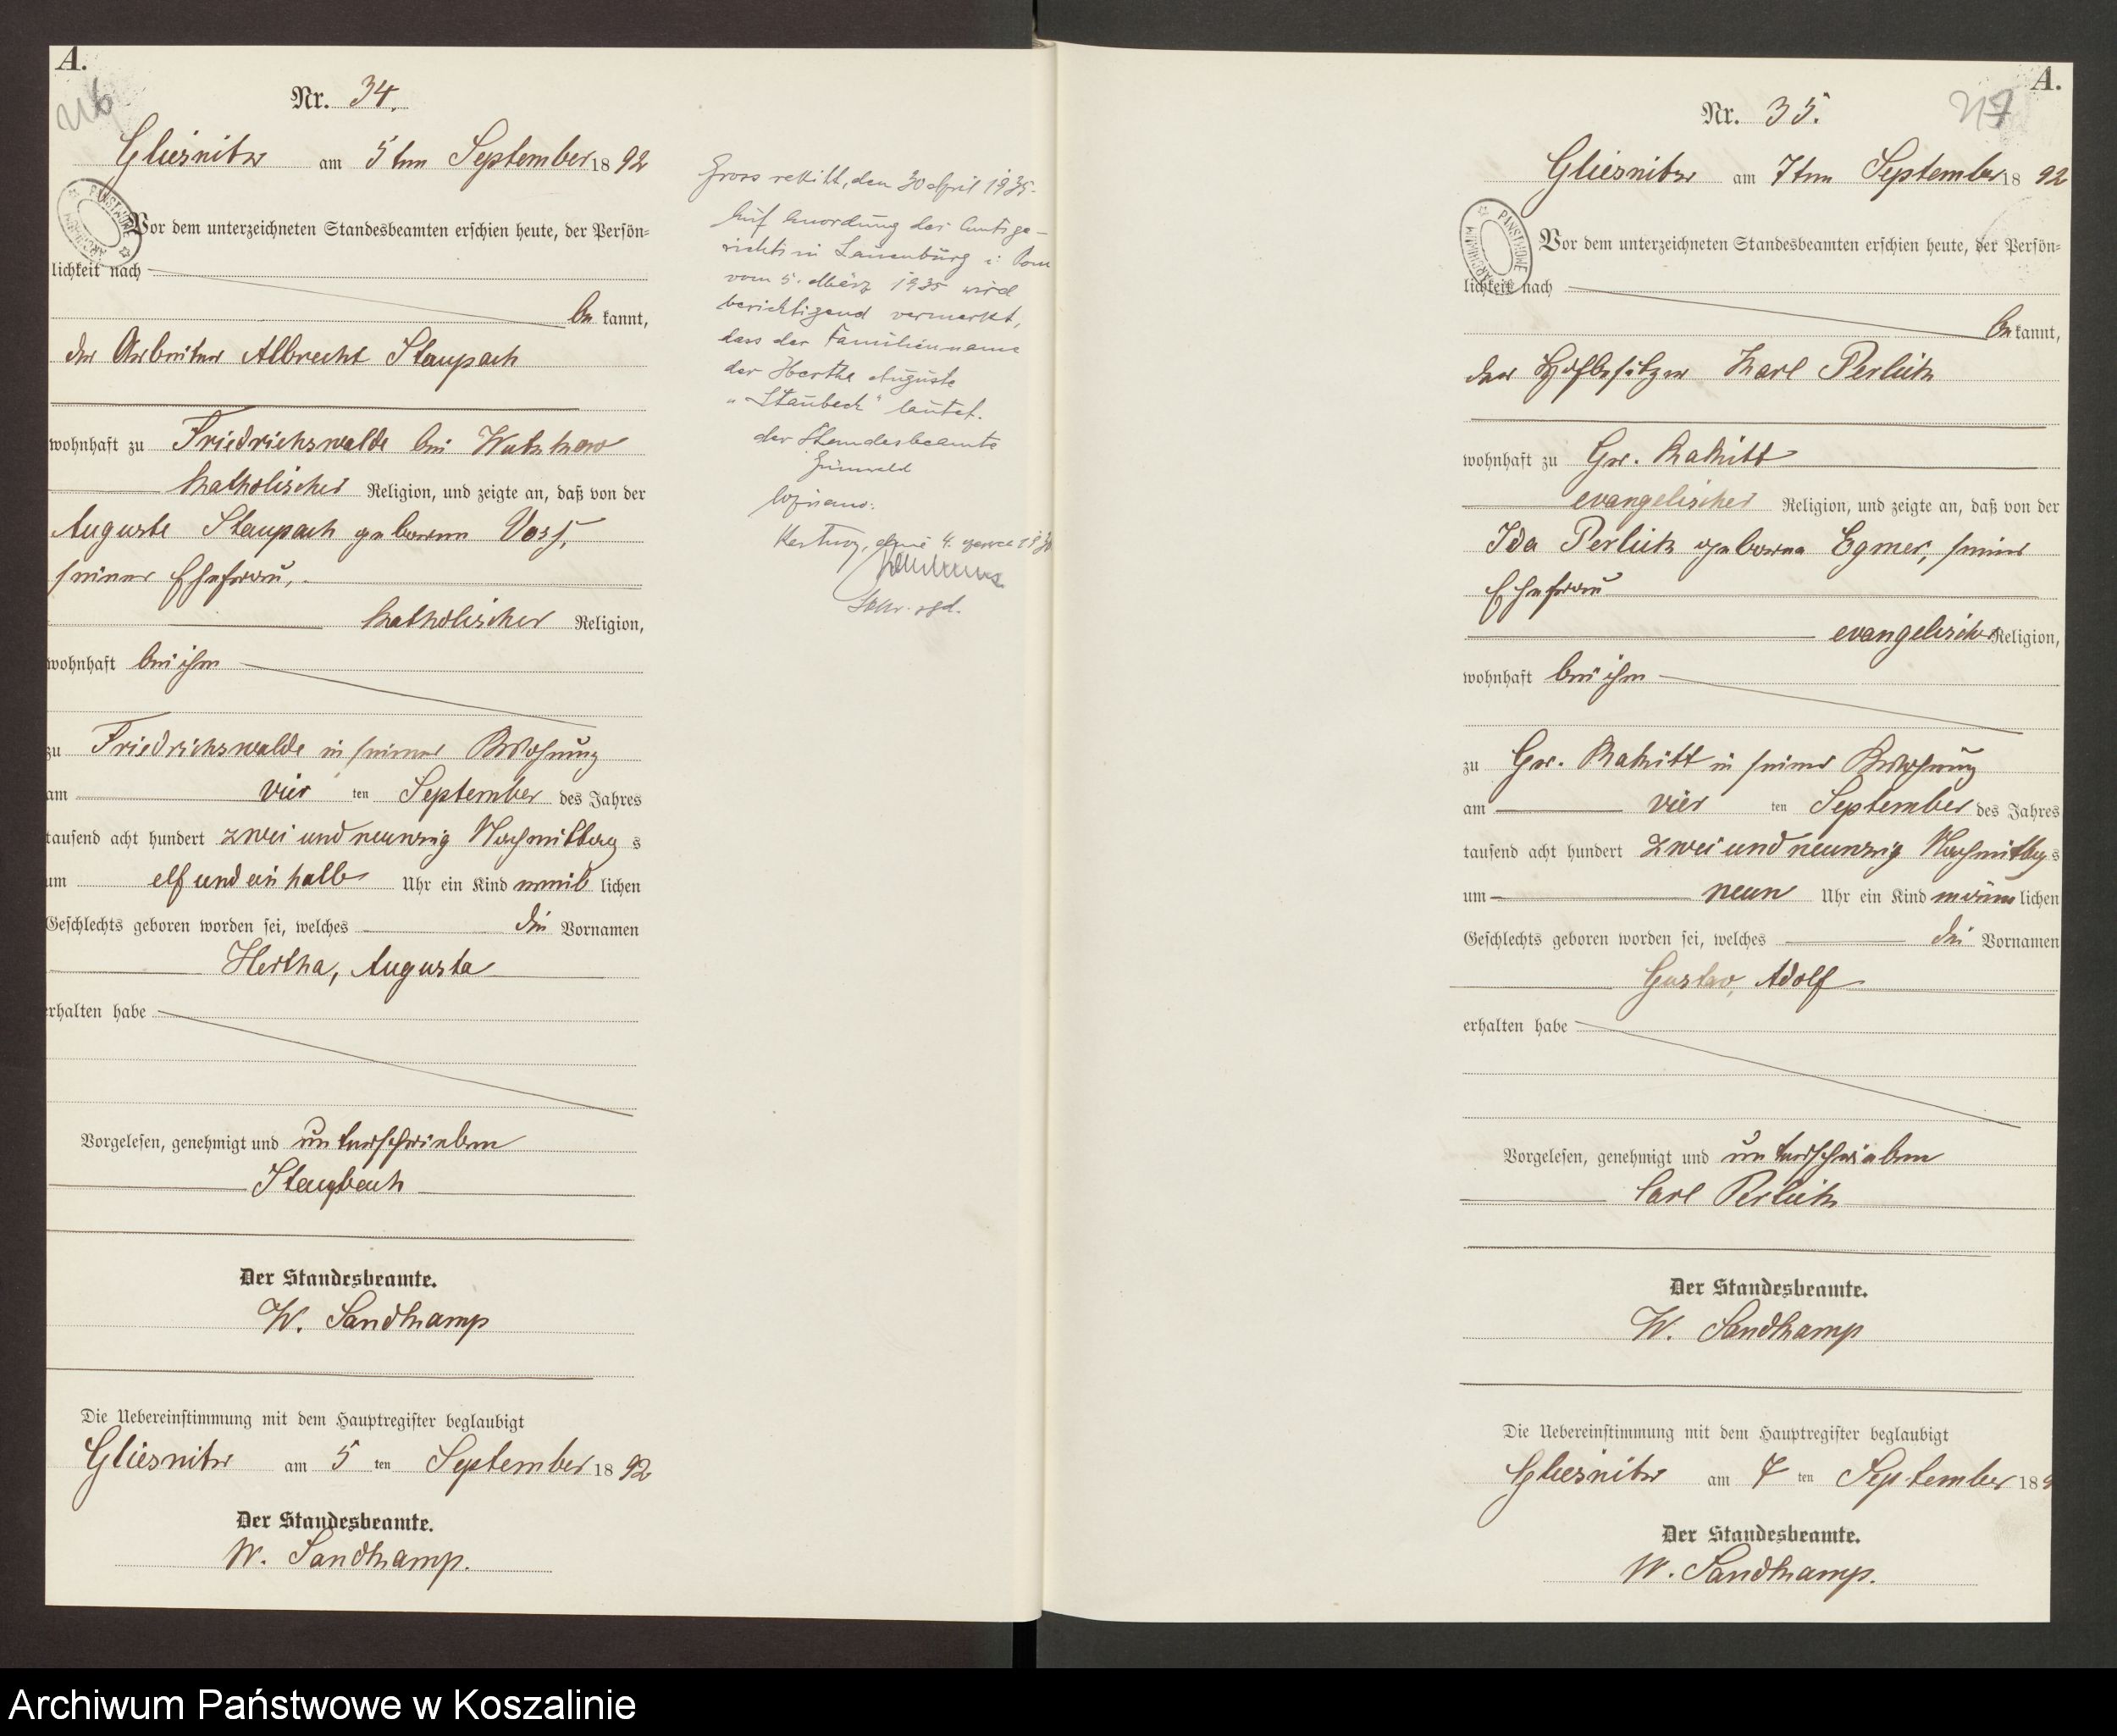 A.
Nr. 34.
Gliesnitz am 5ten September 1892
Vor dem unterzeichneten Standesbeamten erschien heute, der Persön=
lichkeit nach
bekannt,
der Arbeiter Albrecht Staupach
wohnhaft zu Friedrichswalde bei Wutzkow
katholischer Religion, und zeigte an, daß von der
Auguste Staupach geborenen Voss,
seiner Ehefrau,
katholischer Religion,
wohnhaft bei ihm
zu Friedrichswalde in seiner Wohnung
am vier ten September des Jahres
tausend acht hundert zwei und neunzig Nachmittags
um elf und ein halb Uhr ein Kind weiblichen
Geschlechts geboren worden sei, welches die Vornamen
Hertha, Augusta
erhalten habe
Vorgelesen, genehmigt und unterschrieben
Staupbach
Der Standesbeamte.
W. Sandkamp
Die Uebereinstimmung mit dem Hauptregister beglaubigt
Gliesnitz am 5 ten September 1892
Der Standesbeamte.
W. Sandkamp.
Gross rakitt, den 30 April 1935.
Auf Anordnung des Amtsge-
richts in Lauenburg i: Pom
vom 5. März 1935 wird
berichtigend vermerkt,
dass der Familienname
der Hertha Auguste
"Staubeck" lautet.
der Standesbeamte
Grünwald
A.
Nr. 35.
Gliesnitz am 7ten September 1892
Vor dem unterzeichneten Standesbeamten erschien heute, der Persön=
lichkeit nach
bekannt,
der Hofbesitzer Karl Perlick
wohnhaft zu Gr. Rakitt
evangelischer Religion, und zeigte an, daß von der
Ida Perlick geborene Egmer, seiner
Ehefrau
evangelischer Religion,
wohnhaft bei ihm
zu Gr. Rakitt in seiner Wohnung
am vier ten September des Jahres
tausend acht hundert zwei und neunzig Nachmittags
um neun Uhr ein Kind männlichen
Geschlechts geboren worden sei, welches die Vornamen
Gustav, Adolf
erhalten habe
Vorgelesen, genehmigt und unterschrieben
Carl Perlick
Der Standesbeamte.
W. Sandkamp
Die Uebereinstimmung mit dem Hauptregister beglaubigt
Gliesnitz am 7 ten September 189
Der Standesbeamte.
W. Sandkamp.
Archiwum Państwowe w Koszalinie